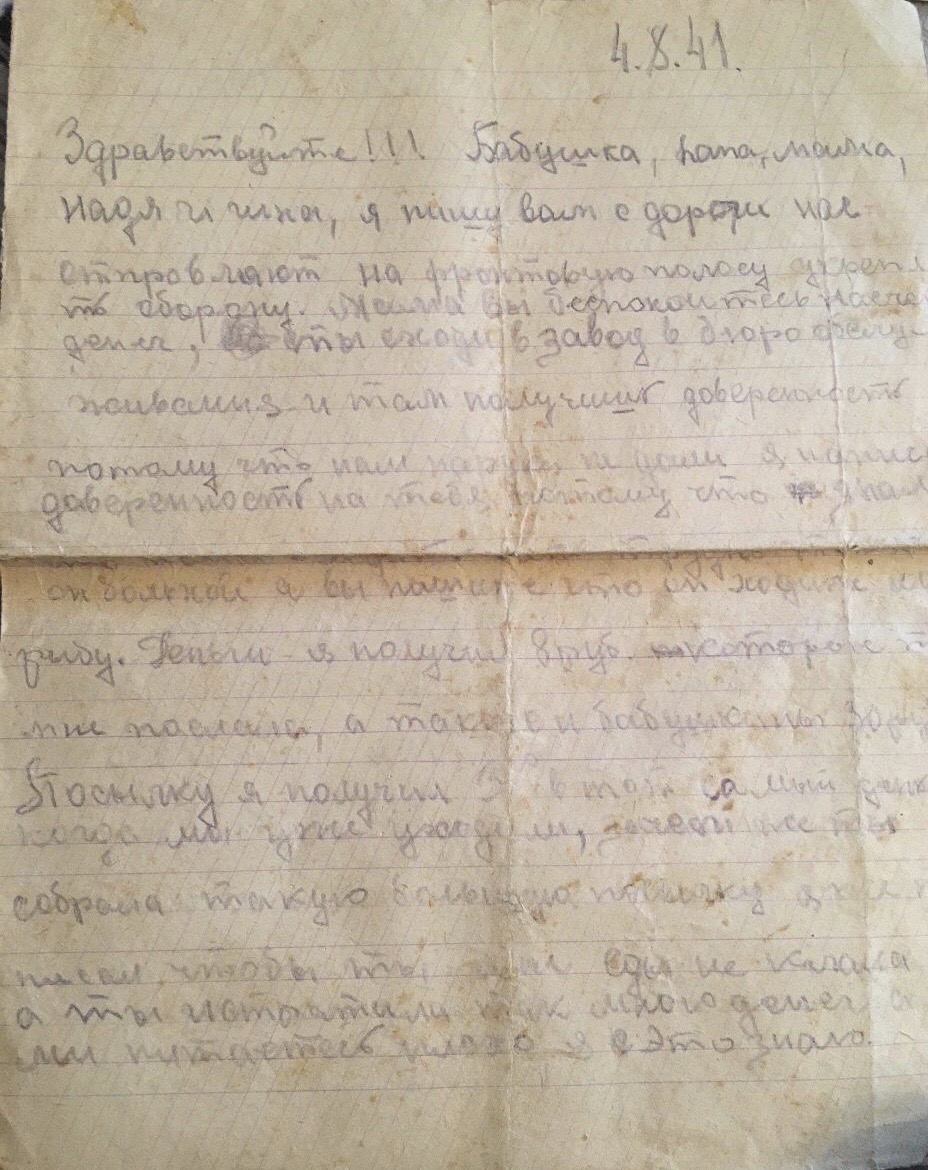 4.8.41.
Здравствуйте!!! Бабушка, папа, мама,
Надя и нина, я пишу вам с дороги нас
отправляют на фронтовую полосу укрепл
ть оборону. Мама вы беспокоитесь насче
денег, ты сходи в завод в бюро
и там получишь доверенность
потому что нам не дали я написа
доверенность на тебя потому что знал
он больной а вы пишите что он ходит
рыбу. Деньги я получил 8 руб. которые
мне послала, а также и бабушкины
Посылку я получил в тот самый день
когда мы уже уходили, зачем же ты
собрала такую большую посылку я же
писал чтобы ты еды не клала
а ты истратила так много денег а
ми питаетесь плохо я это знаю.